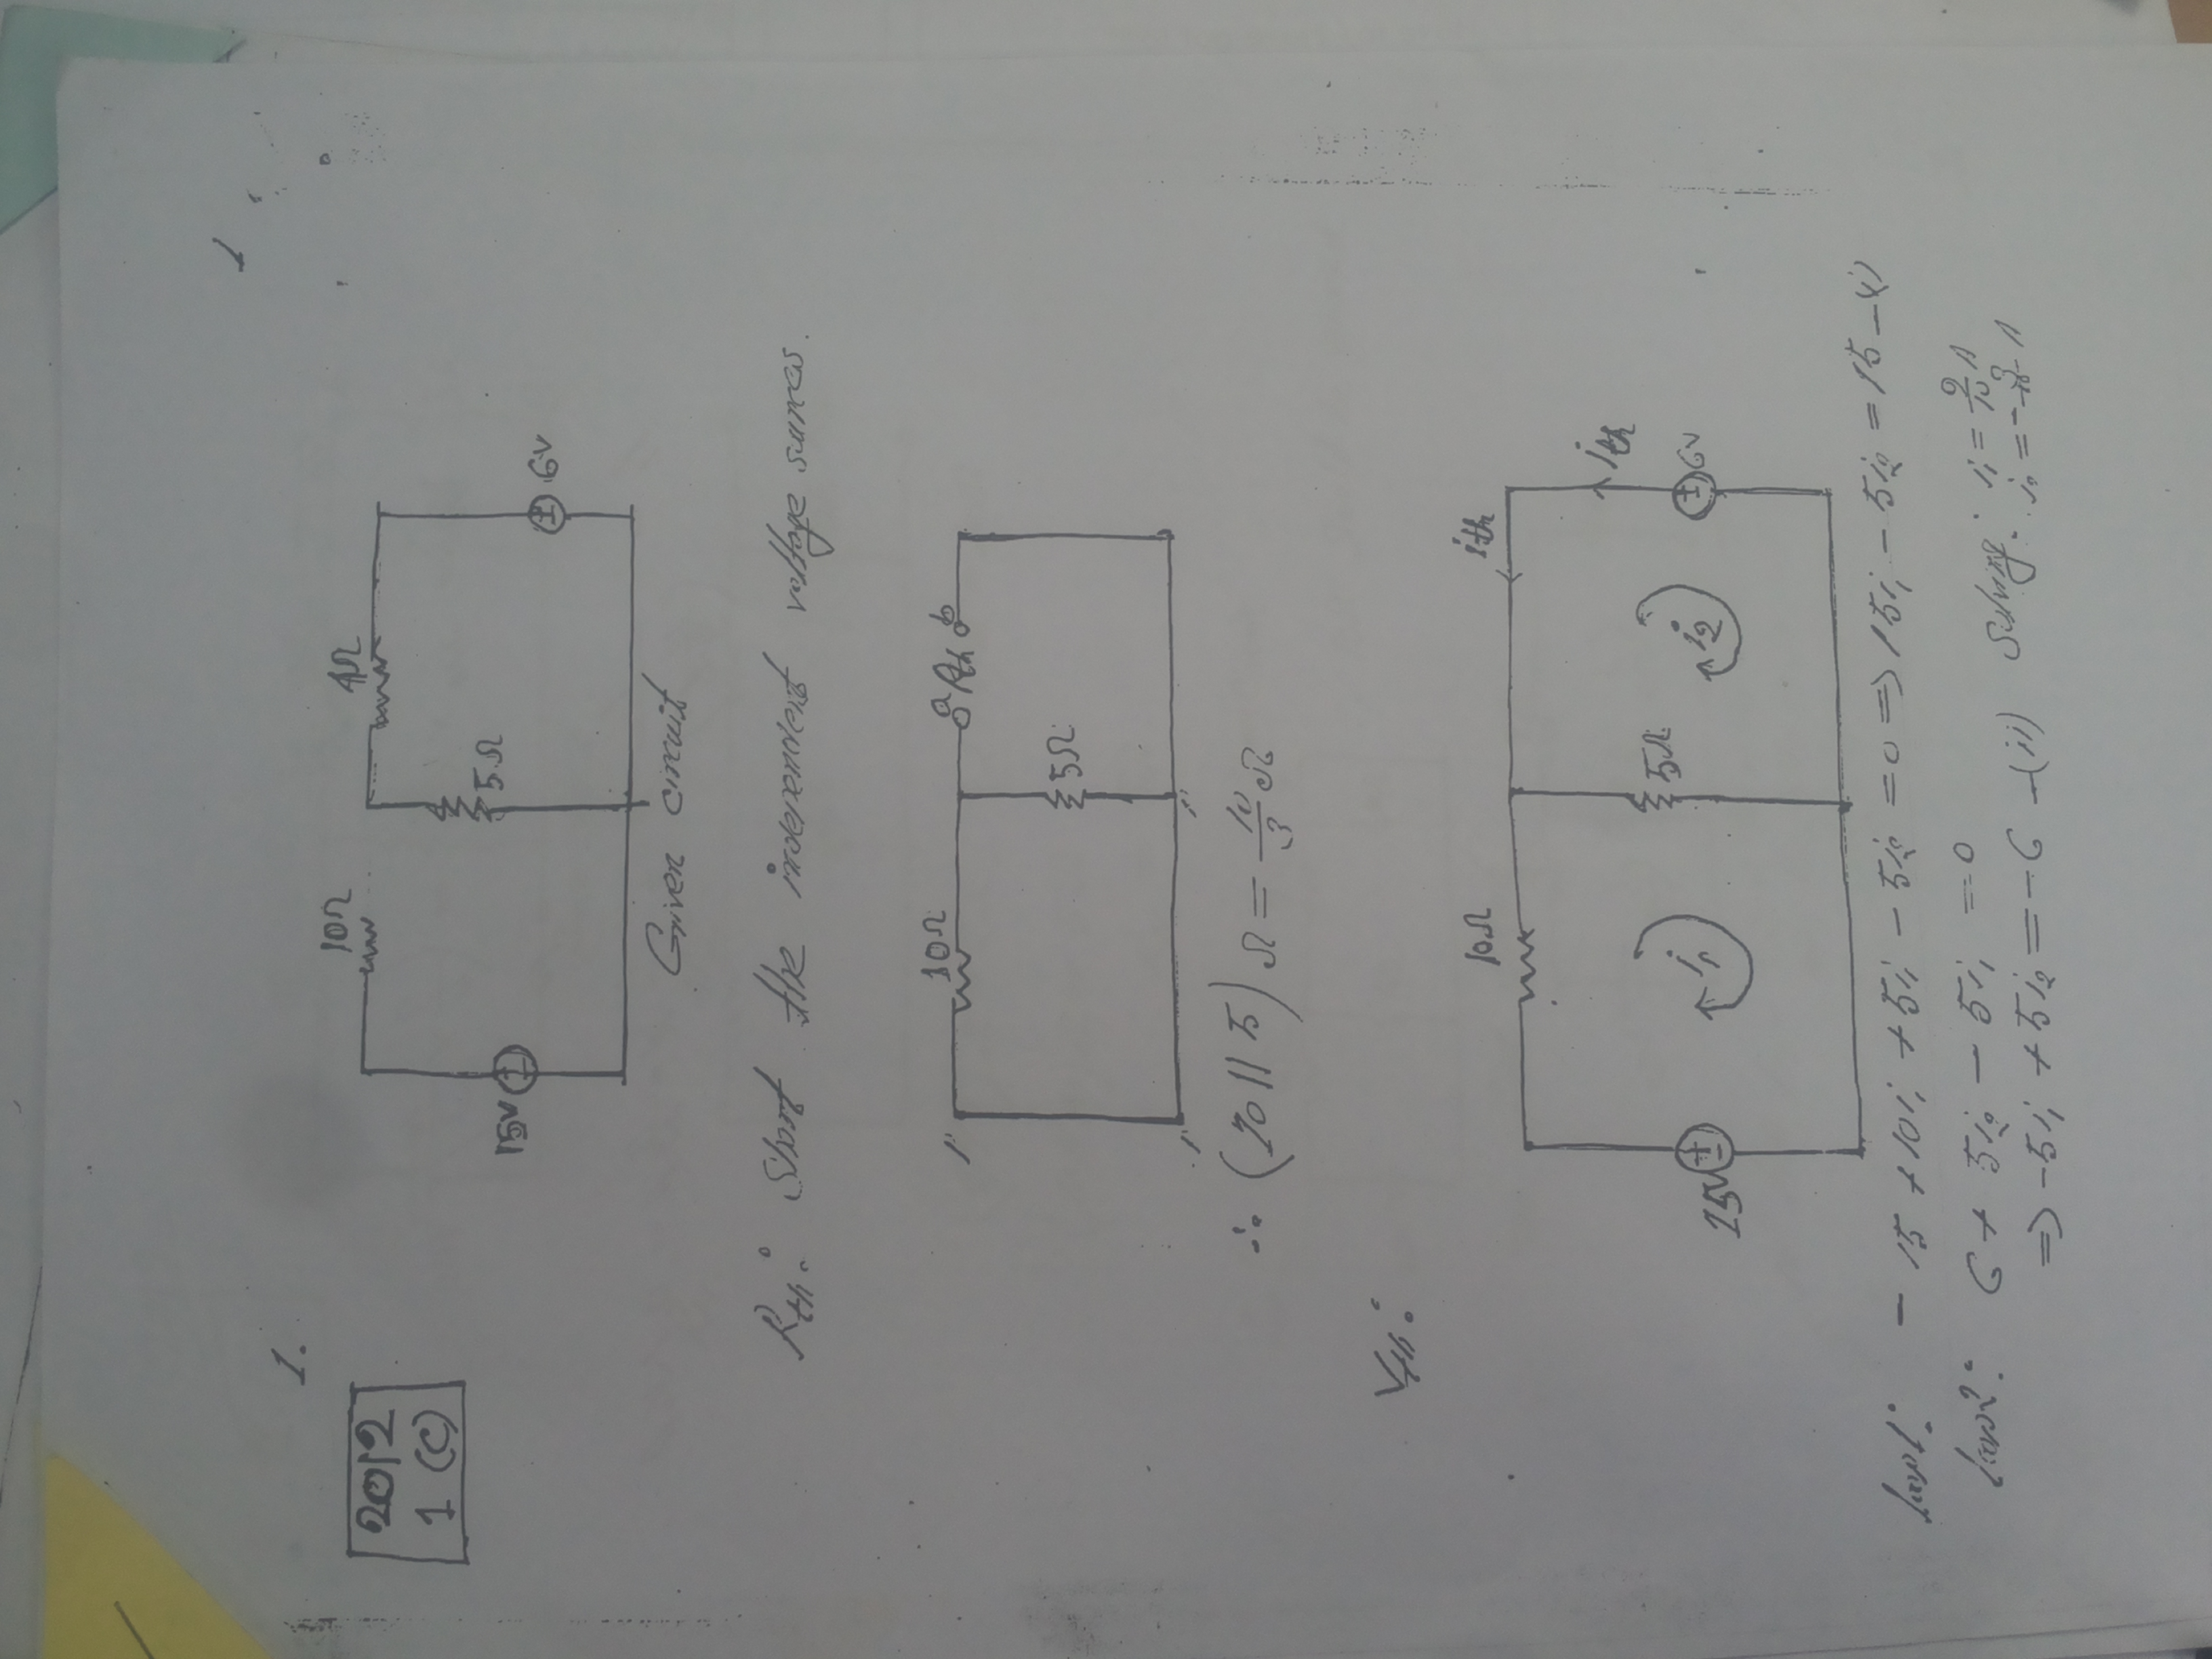 1
1.
2012
1 (C)
10Ω
4Ω
15V
5Ω
6V
Given circuit
Rth: Short the independent voltage surces.
10Ω
a Rth b
5Ω
∴ (10 || 5) Ω = 10/3 Ω
Vth:
10Ω
ith
ith
15V
+
-
i1
5Ω
i2
6V
loop1: - 15 + 10i1 + 5i1 - 5i2 = 0 => 15i1 - 5i2 = 15 -(i)
loop2: 6 + 5i2 - 5i1 = 0
=> -5i1 + 5i2 = -6 -(ii) Solving: i1 = 9/10 A
i2 = -3/10 A